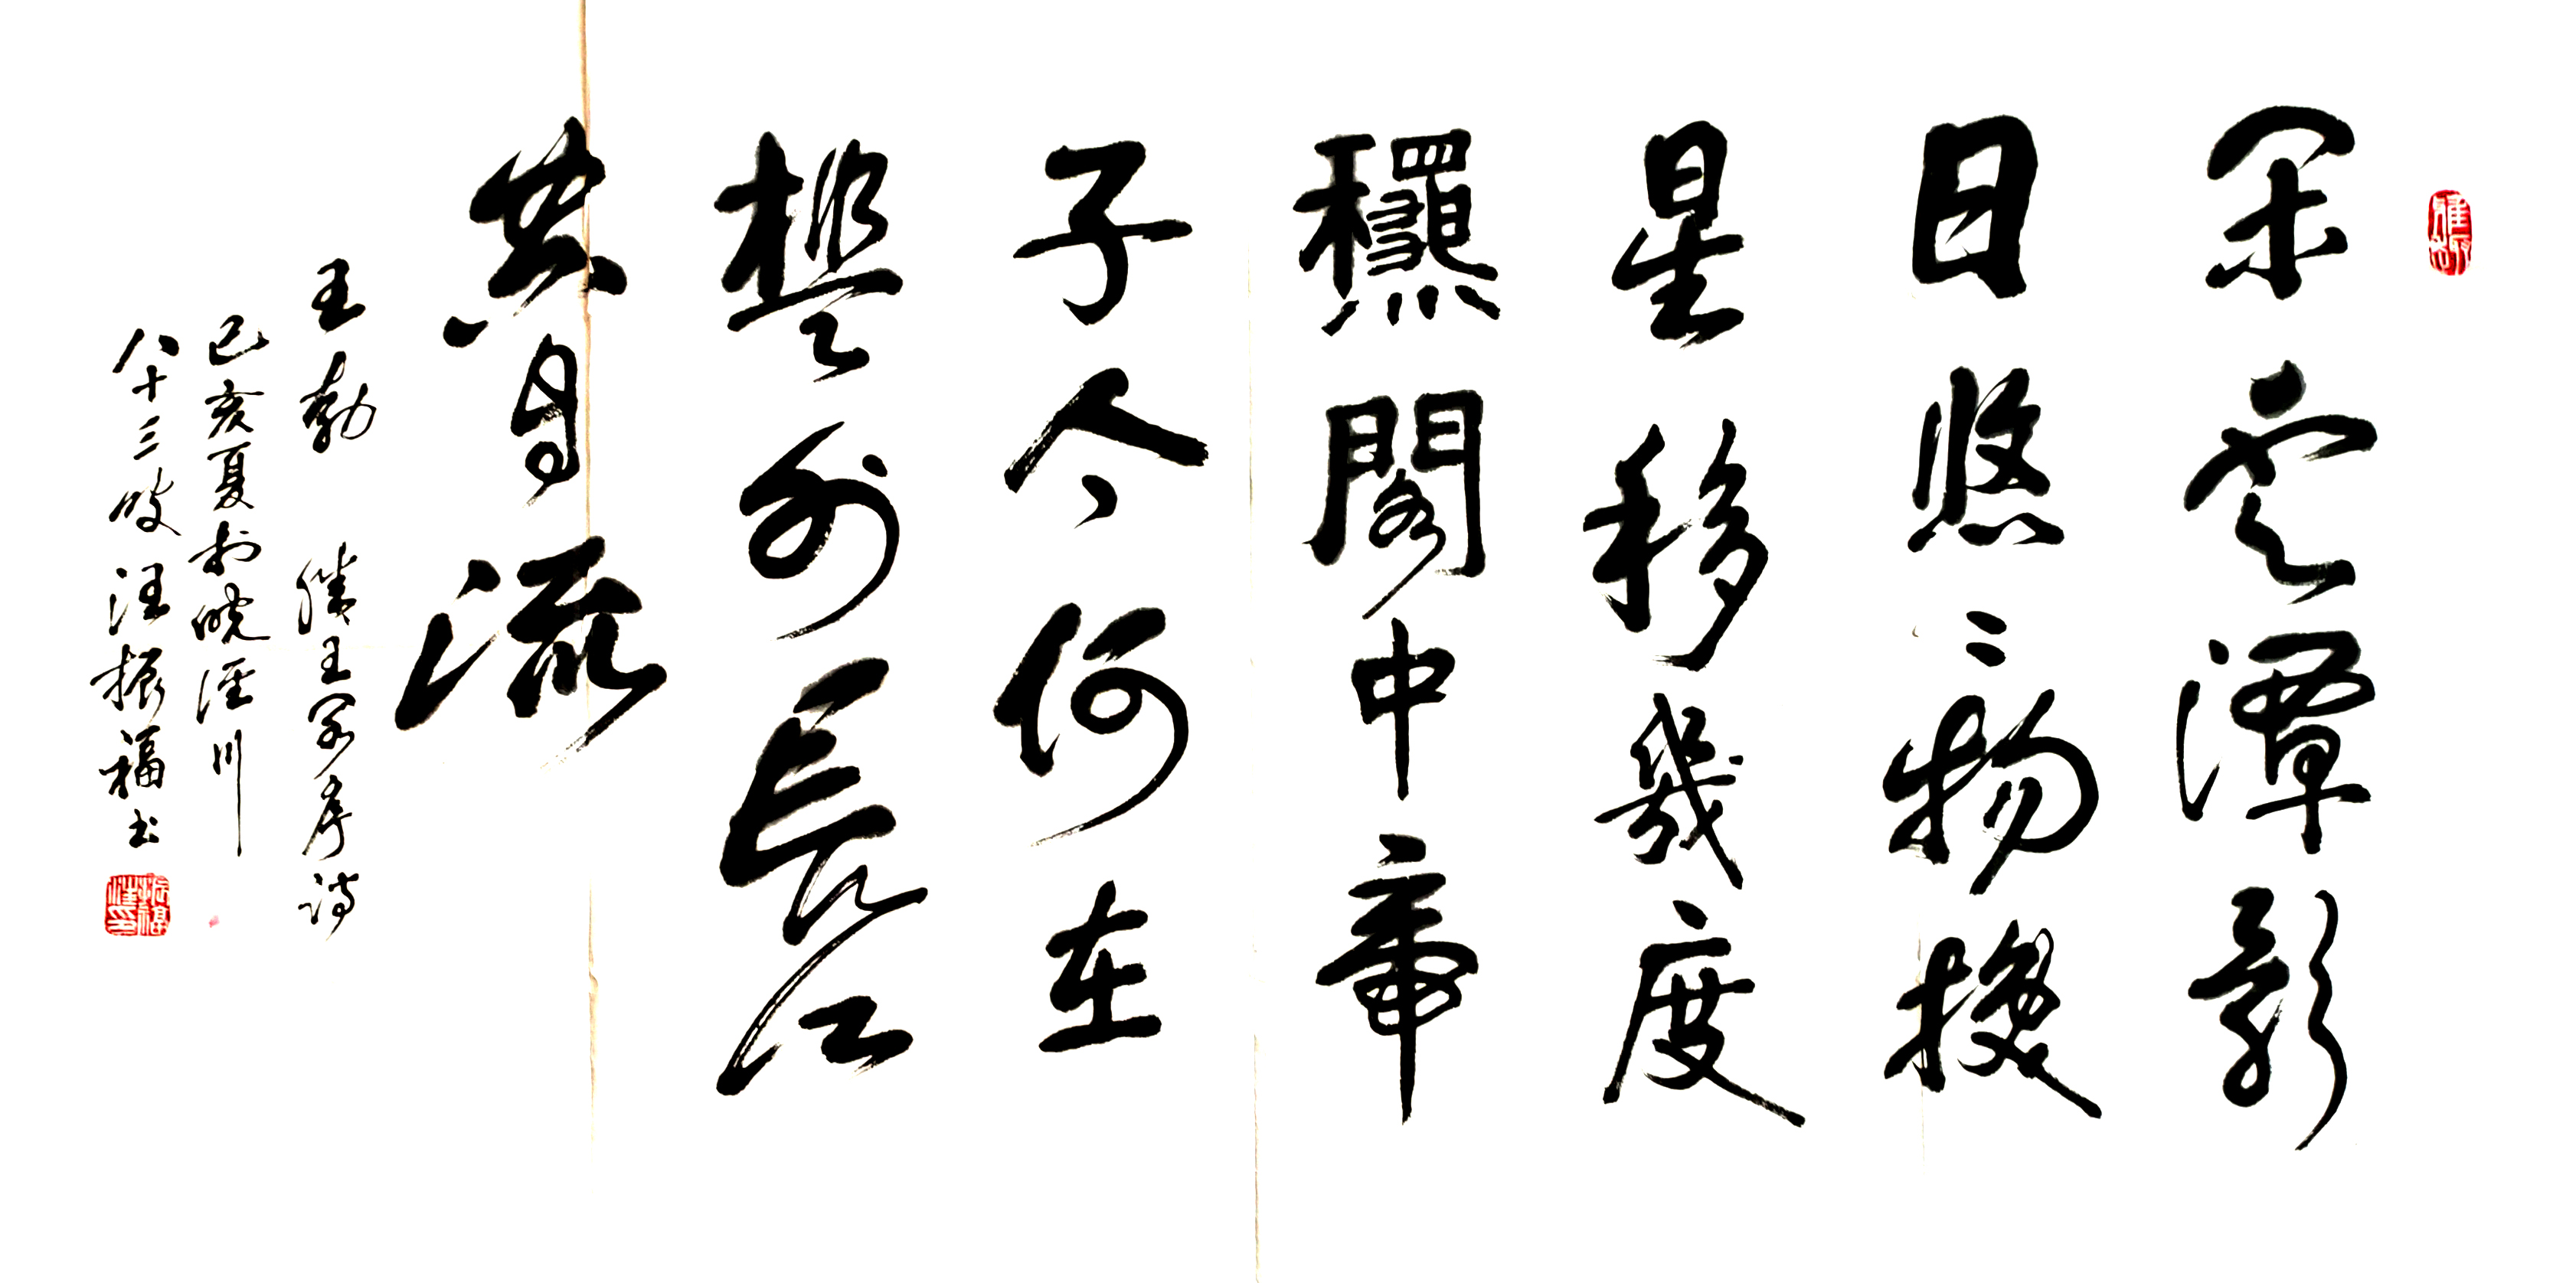 闲云潭影
日悠々物換
星移幾度
龝閣中帝
子今何在
檻外長江
空自流
王勃 滕王阁序诗
己亥夏於皖涇川
八十三叟汪振福书